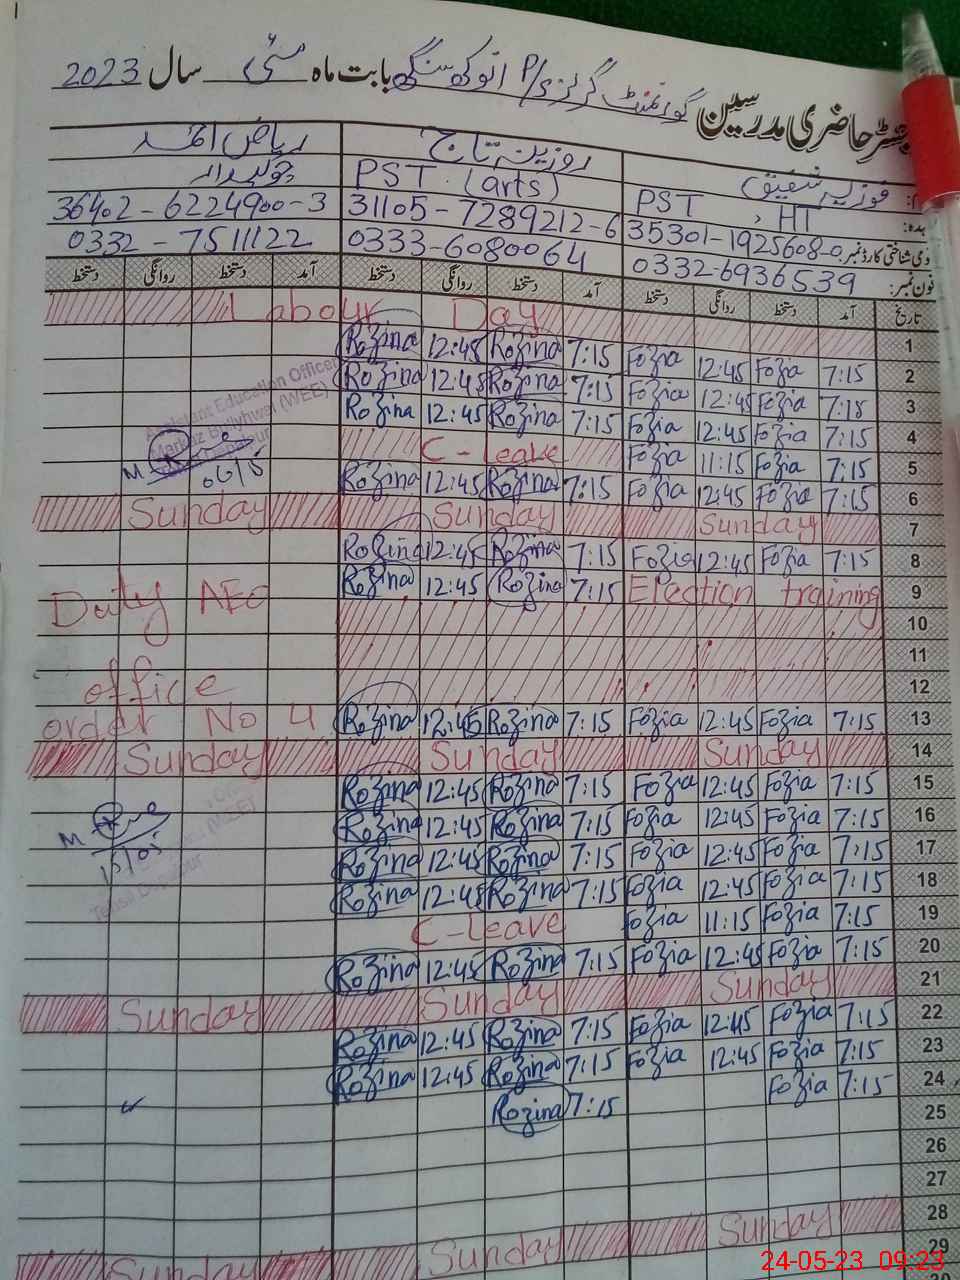 رجسٹر حاضری مدرسین گورنمنٹ گرلز P/ انوکھ سنگھ بابت ماہ مئی سال 2023
فوزیہ شفیق روزینہ تاج ریاض احمد
عہدہ: PST , HT PST (arts) چوکیدار
قومی شناختی کارڈ نمبر 35301-1925608-0 31105-7289212-6 36402-6224900-3
فون نمبر: 0332-6936539 0333-6080064 0332-7511122
تاریخ آمد دستخط روانگی دستخط آمد دستخط روانگی دستخط آمد دستخط روانگی دستخط
Labour Day 1
Rozina 12:45 Rozina 7:15 Fozia 12:45 Fozia 7:15 2
Rozina 12:45 Rozina 7:15 Fozia 12:45 Fozia 7:15 3
Rozina 12:45 Rozina 7:15 Fozia 12:45 Fozia 7:15 4
C-leave Fozia 11:15 Fozia 7:15 5
Rozina 12:45 Rozina 7:15 Fozia 12:45 Fozia 7:15 6
Assistant Education Officer
Markaz (WEE)
06/5
Sunday Sunday Sunday 7
Rozina 12:45 Rozina 7:15 Fozia 12:45 Fozia 7:15 8
Rozina 12:45 Rozina 7:15 Election training 9
Duty AEO 10
11
office 12
order No 4 Rozina 12:45 Rozina 7:15 Fozia 12:45 Fozia 7:15 13
Sunday Sunday Sunday 14
Rozina 12:45 Rozina 7:15 Fozia 12:45 Fozia 7:15 15
Rozina 12:45 Rozina 7:15 Fozia 12:45 Fozia 7:15 16
15/05
Tehsil
Rozina 12:45 Rozina 7:15 Fozia 12:45 Fozia 7:15 17
Rozina 12:45 Rozina 7:15 Fozia 12:45 Fozia 7:15 18
C-leave Fozia 11:15 Fozia 7:15 19
Rozina 12:45 Rozina 7:15 Fozia 12:45 Fozia 7:15 20
Sunday Sunday Sunday 21
Rozina 12:45 Rozina 7:15 Fozia 12:45 Fozia 7:15 22
Rozina 12:45 Rozina 7:15 Fozia 12:45 Fozia 7:15 23
Rozina 7:15 Fozia 7:15 24
25
26
27
Sunday Sunday Sunday 28
29
24-05-23 09:23